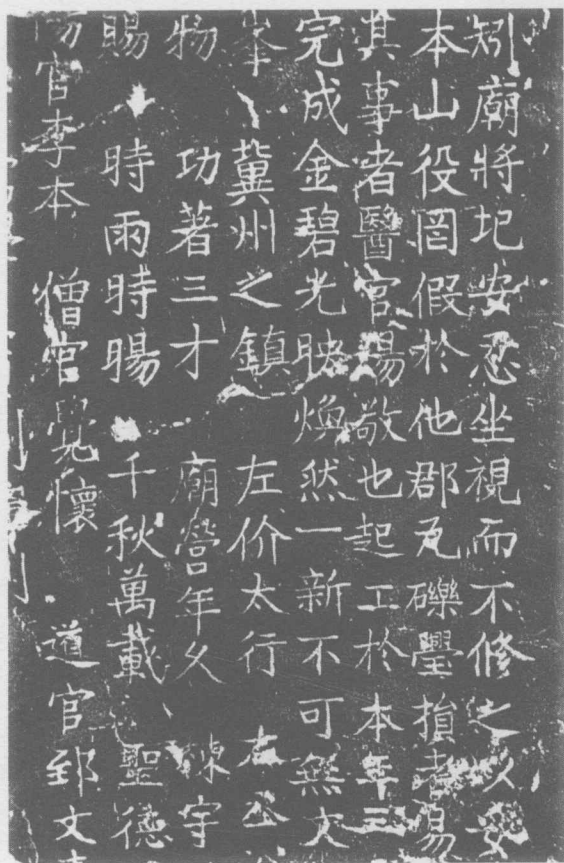 矧廟將圮安忍坐視而不修之以安
本山役罔假於他郡瓦礫璺損者易
其事者醫官楊敬也起工於本年三
完成金碧光映煥然一新不可無文
峯 冀州之鎮 左价太行 右
物 功著三才 廟營年久 棟宇
賜 時雨時暘 千秋萬載 聖德
陽官李本 僧官覺懷 道官郅文